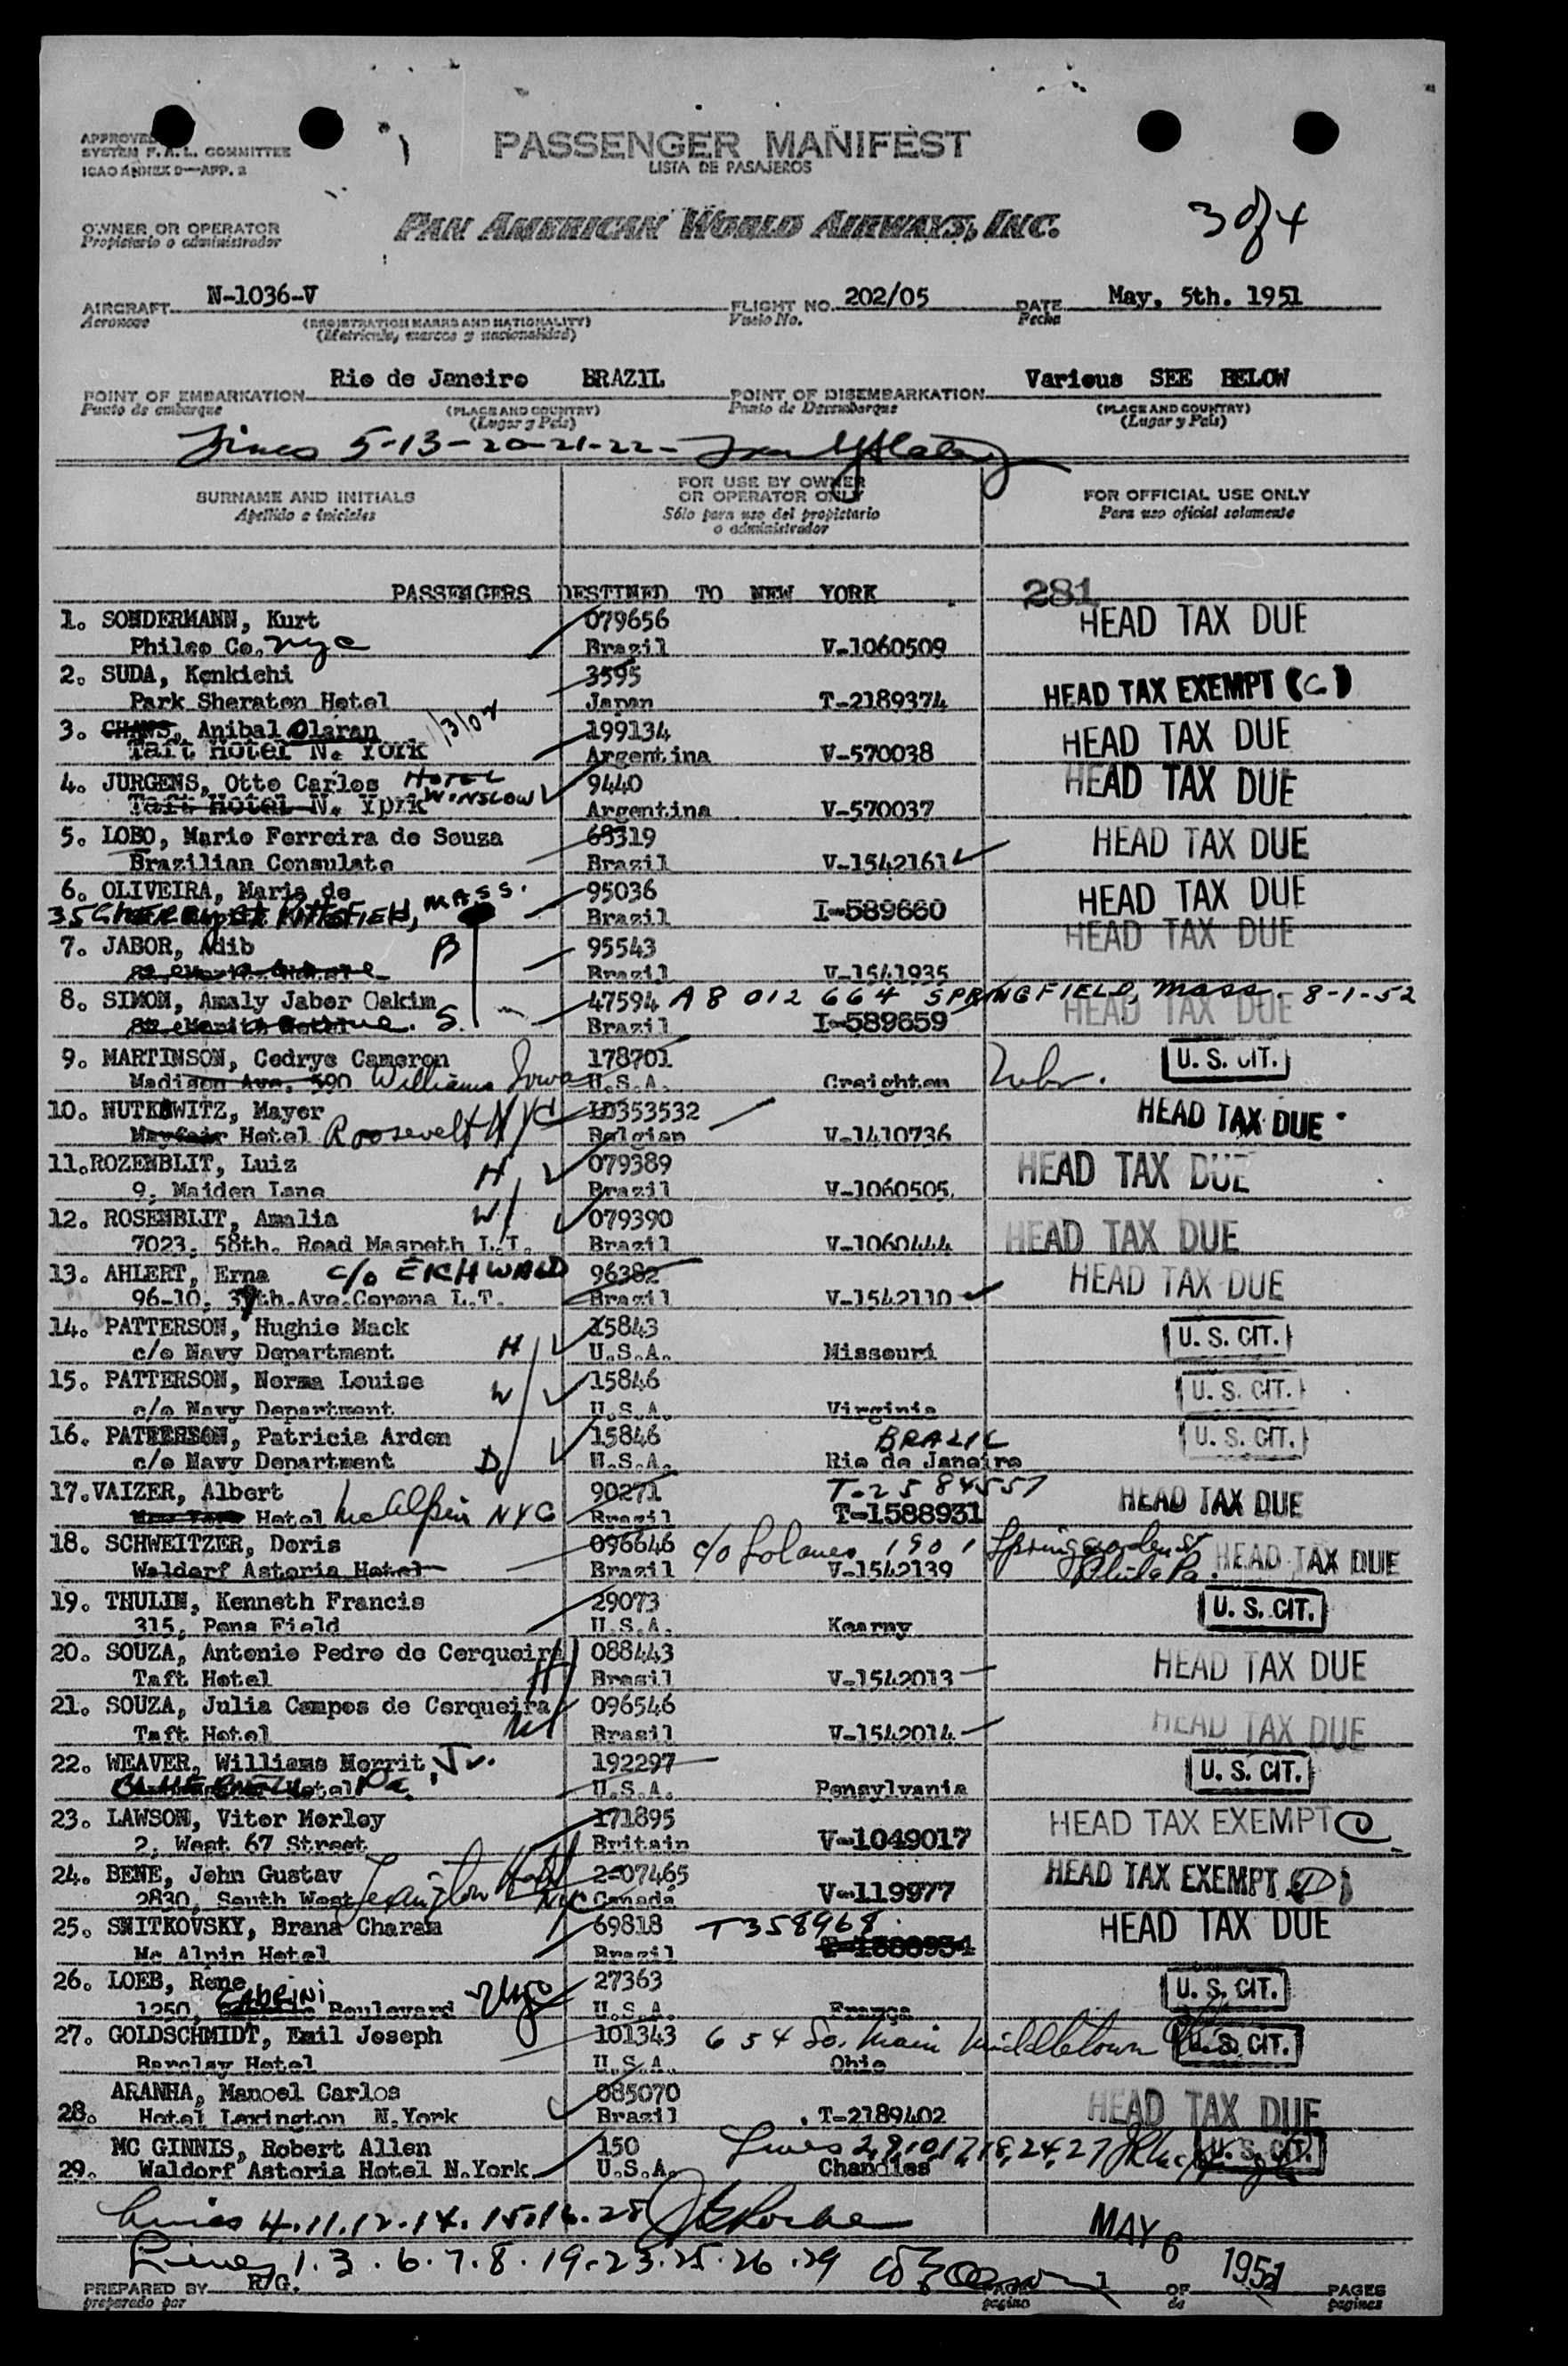 APPROVED
SYSTEM F.A.L. COMMITTEE
ICAO ANNEX 9—APP. 2
PASSENGER MANIFEST
LISTA DE PASAJEROS
OWNER OR OPERATOR
Propietario o administrador
PAN AMERICAN WORLD AIRWAYS, INC.
3 of 4
AIRCRAFT N-1036-V FLIGHT NO. 202/05 DATE May, 5th. 1951
Aeronave (REGISTRATION MARKS AND NATIONALITY) Vuelo No. Fecha
(Matrícula, marcas y nacionalidad)
POINT OF EMBARKATION Rio de Janeiro BRAZIL POINT OF DISEMBARKATION Various SEE BELOW
Punto de embarque (PLACE AND COUNTRY) Punto de Desembarque (PLACE AND COUNTRY)
(Lugar y País) (Lugar y País)
Lines 5-13-20-21-22-
SURNAME AND INITIALS FOR USE BY OWNER OR OPERATOR ONLY FOR OFFICIAL USE ONLY
Apellido e iniciales Sólo para uso del propietario o administrador Para uso oficial solamente
PASSENGERS DESTINED TO NEW YORK 281
1. SONDERMANN, Kurt 079656 HEAD TAX DUE
Philco Co. nyc Brazil V-1060509
2. SUDA, Kenkichi 3595
Park Sheraton Hotel Japan T-2189374 HEAD TAX EXEMPT (C)
3. Anibal Olaran 199134 HEAD TAX DUE
Taft Hotel N. York Argentina V-570038
4. JURGENS, Otto Carlos HOTEL 9440 HEAD TAX DUE
Taft Hotel N. Yprk WINSLOW Argentina V-570037
5. LOBO, Mario Ferreira de Souza 68319 HEAD TAX DUE
Brazilian Consulate Brazil V-1542161
6. OLIVEIRA, Maria de MASS. 95036 HEAD TAX DUE
35 CHERRY ST PITTSFIELD, Brazil I-589660
7. JABOR, Adib B 95543 HEAD TAX DUE
Brazil V-1541935
8. SIMOM, Amaly Jaber Oakim 47594 A8 012 664 SPRINGFIELD, Mass. 8-1-52
S. Brazil I-589659 HEAD TAX DUE
9. MARTINSON, Cedryc Cameron 178701 U. S. CIT.
Madison Ave. 590 Williams Iowa U.S.A. Creighton Nebr.
10. NUTKOWITZ, Mayer ID353532 HEAD TAX DUE
Mayfair Hotel Roosevelt NYC Belgian V-1410736
11. ROZENBLIT, Luiz H 079389 HEAD TAX DUE
9, Maiden Lane Brazil V-1060505
12. ROSENBLIT, Amalia W 079390
7023, 58th. Road Maspeth L.I. Brazil V-1060444 HEAD TAX DUE
13. AHLERT, Erna c/o EICHWALD 96382 HEAD TAX DUE
96-10, 37th.Ave.Corona L.I. Brazil V-1542110
14. PATTERSON, Hughie Mack 15843 U. S. CIT.
c/o Navy Department H U.S.A. Missouri
15. PATTERSON, Norma Louise 15846 U. S. CIT.
c/o Navy Department W U.S.A. Virginia
16. PATTERSON, Patricia Arden 15846 BRAZIL U. S. CIT.
c/o Navy Department D U.S.A. Rio de Janeiro
17. VAIZER, Albert 90271 T-2584557 HEAD TAX DUE
Hotel McAlpin NYC Brazil T-1588931
18. SCHWEITZER, Doris 096646 c/o Solanes 1901 Springgarden St
Waldorf Astoria Hotel Brazil V-1542139 Phila Pa. HEAD TAX DUE
19. THULIN, Kenneth Francis 29073 U. S. CIT.
315, Penn Field U.S.A. Kearny
20. SOUZA, Antonio Pedro de Cerqueira 088443 HEAD TAX DUE
Taft Hotel H Brasil V-1542013
21. SOUZA, Julia Campos de Cerqueira 096546
Taft Hotel W Brasil V-1542014 HEAD TAX DUE
22. WEAVER, Williams Morrit, Jr. 192297 U. S. CIT.
Hotel Pa. U.S.A. Pensylvania
23. LAWSON, Vitor Morley 171895 HEAD TAX EXEMPT
2, West 67 Street Britain V-1049017
24. BENE, John Gustav Lexington Hotel 2-07465 HEAD TAX EXEMPT (D)
2830, South West NYC Canada V-119977
25. SMITKOVSKY, Brana Charam 69818 T358968 HEAD TAX DUE
Mc Alpin Hotel Brazil
26. LOEB, Rene 27363 U. S. CIT.
1250, CABRINI Boulevard nyc U.S.A. França
27. GOLDSCHMIDT, Emil Joseph 101343 654 So. Main Middletown Ohio U. S. CIT.
Barclay Hotel U.S.A. Ohio
ARANHA, Manoel Carlos 085070
28. Hotel Lexington N.York Brazil T-2189402 HEAD TAX DUE
MC GINNIS, Robert Allen 150 Lines 2,9,10,17,18,24,27 U. S. CIT.
29. Waldorf Astoria Hotel N.York U.S.A. Chandles
Lines 4.11.12.14.15.16.28
Lines 1.3.6.7.8.19.23.25.26.29
MAY 6 1951
PREPARED BY R/G. PAGE 1 OF PAGES
preparado por pagina de paginas